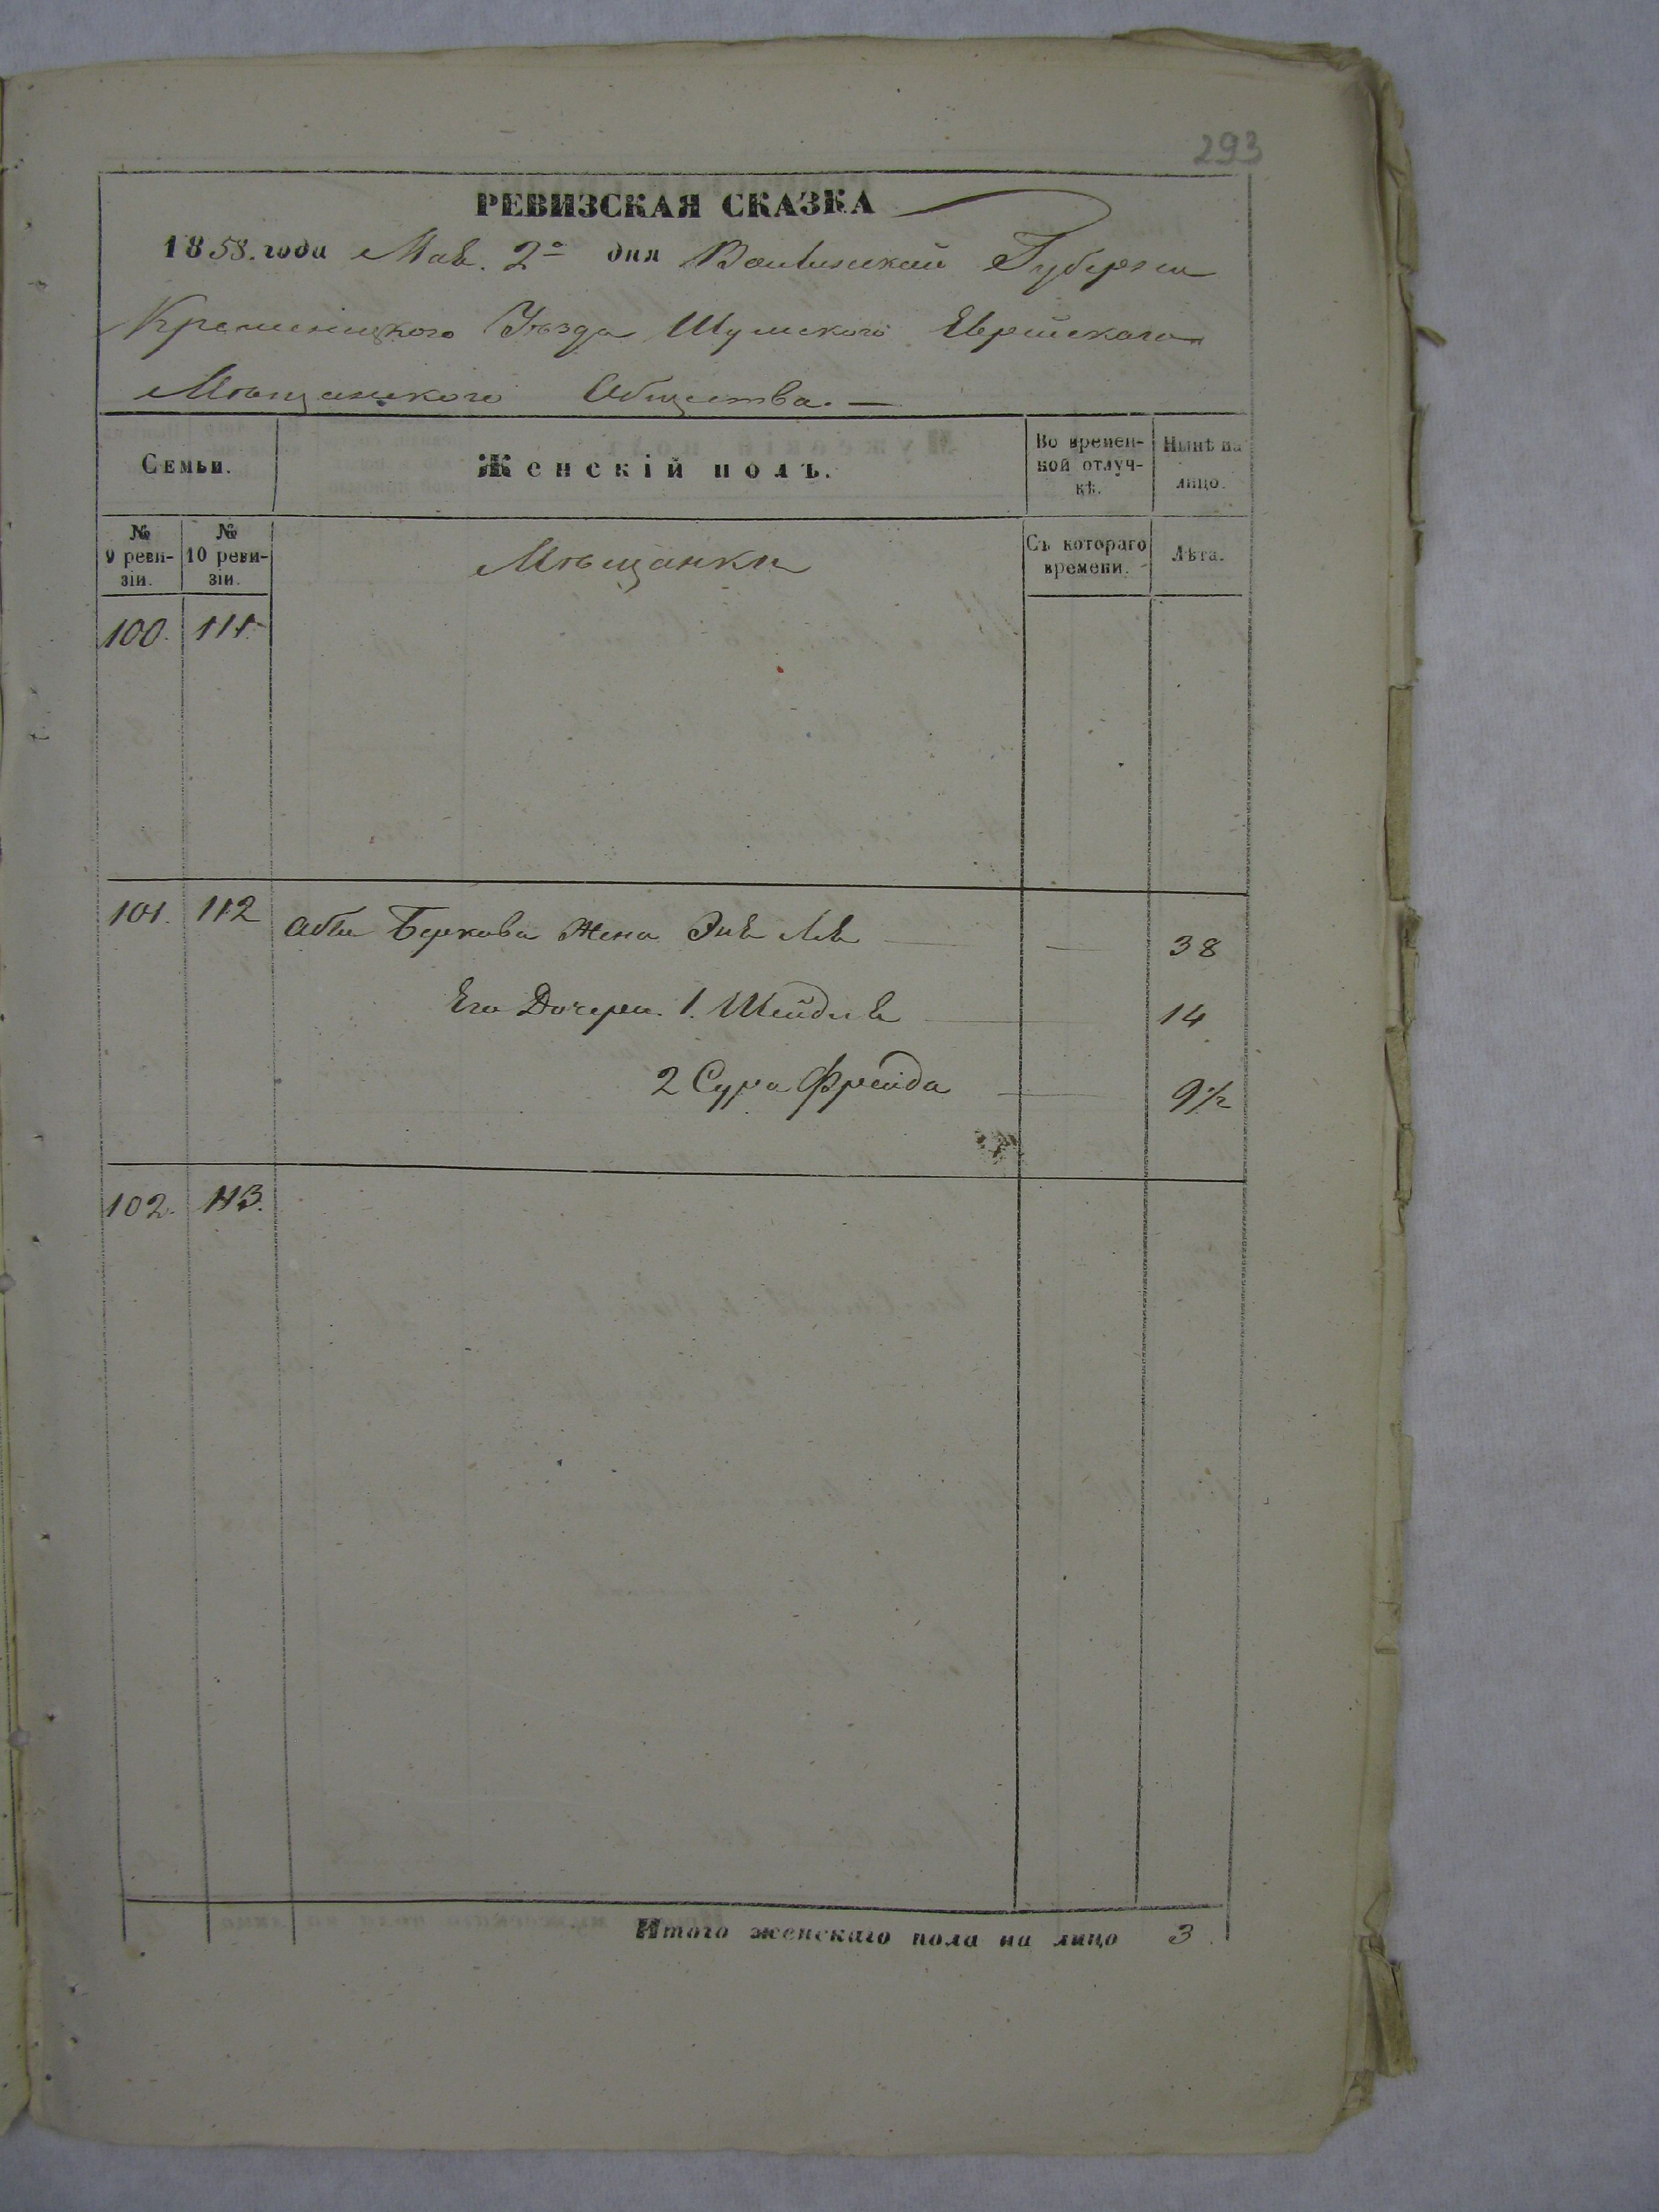 293
РЕВИЗСКАЯ СКАЗКА
1858. года Мая. 2го дня Волынской Губерніи
Кременецкого Уѣзда Шумского Еврейскаго
Мѣщанского Общества. —
Семьи.
Женскій полъ.
Во времен-
ной отлуч-
кѣ.
Нынѣ на
лицо.
№
9 реви-
зіи.
№
10 реви-
зіи.
Мѣщанки
Съ котораго
времени.
Лѣта.
100. 111.
101. 112 Жена — 38
Его Дочери. 1. Шейдля 14
2 Сура Фрейда 9 1/2
102. 113.
Итого женскаго пола на лицо 3.